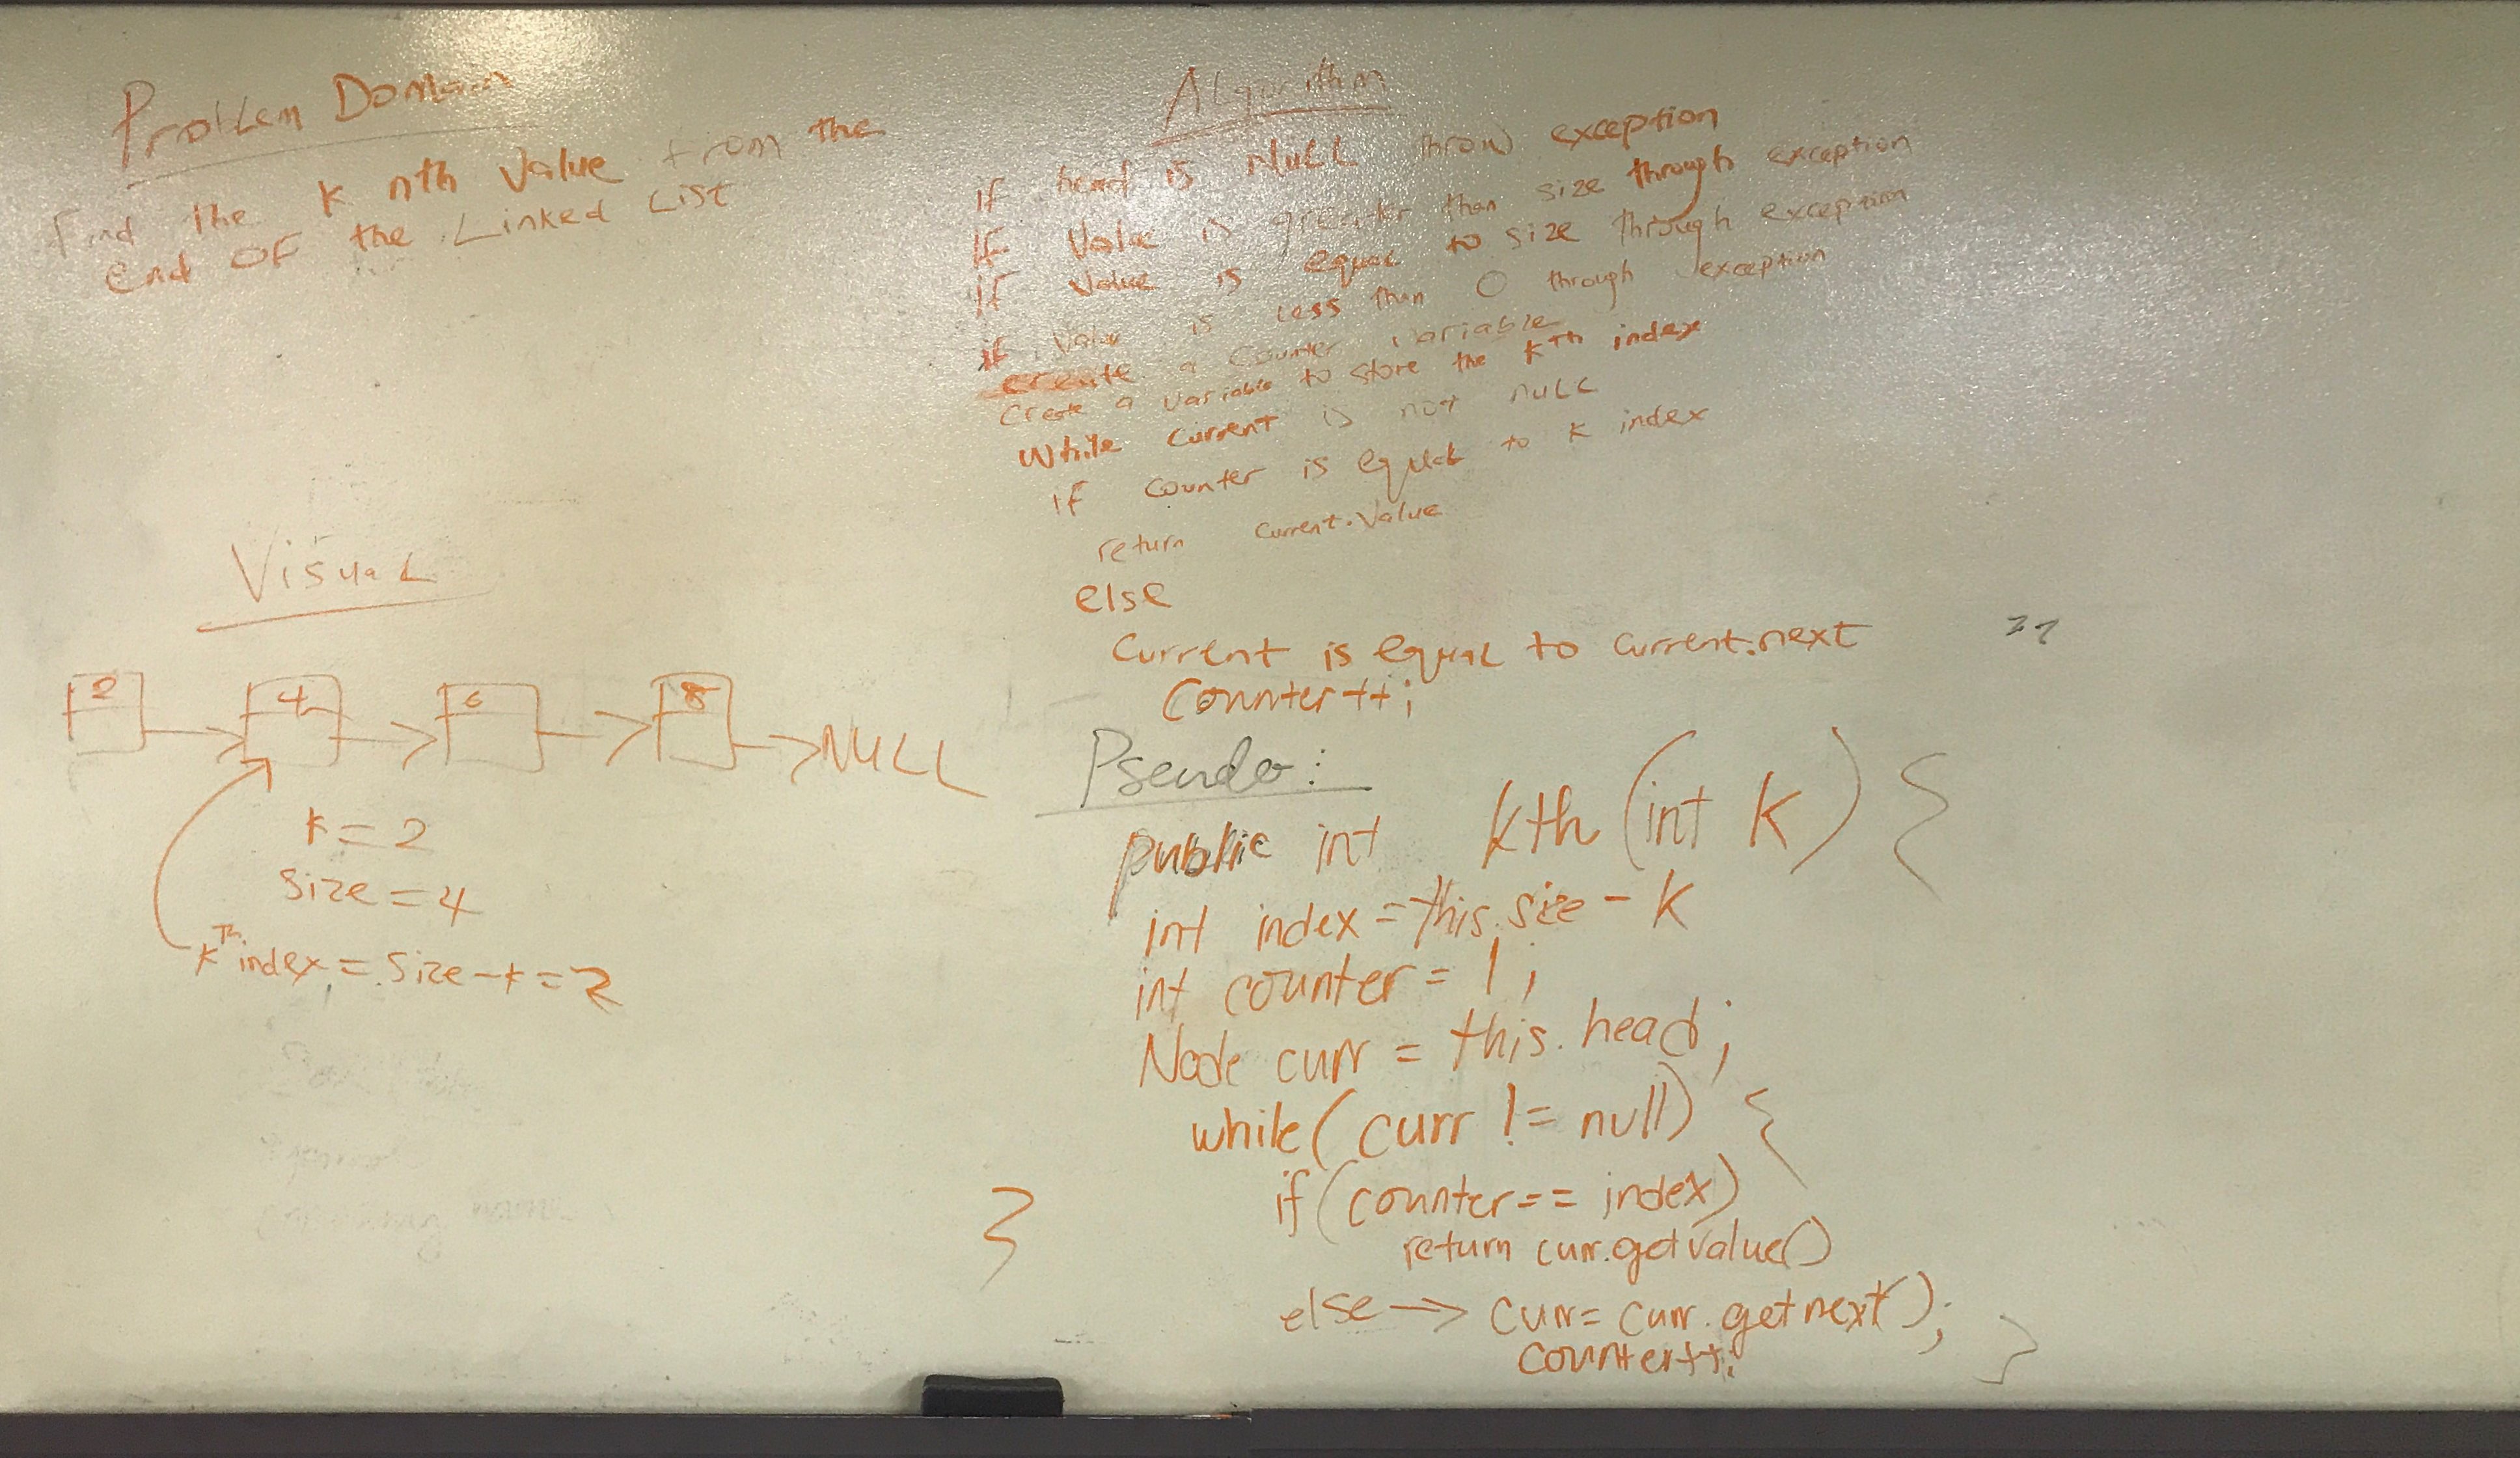 Problem Domain
Find the k nth value from the
end OF the Linked List
Visual
2 4 6 8 NULL
k = 2
Size = 4
kTh index = Size - k = 2
Algorithm
if head is NULL throw exception
If Value is greater than size through exception
If Value is equal to size through exception
if Value is less than 0 through exception
create a counter variable
Create a variable to store the kTh index
While current is not null
if counter is equal to k index
return current.value
else
Current is equal to current.next
Counter++;
Pseudo:
public int kth (int k) {
int index = this.size - k
int counter = 1;
Node curr = this.head;
while( curr != null) {
if (counter == index)
return curr.getvalue()
else → curr = curr.getnext);
counter++;
}
}